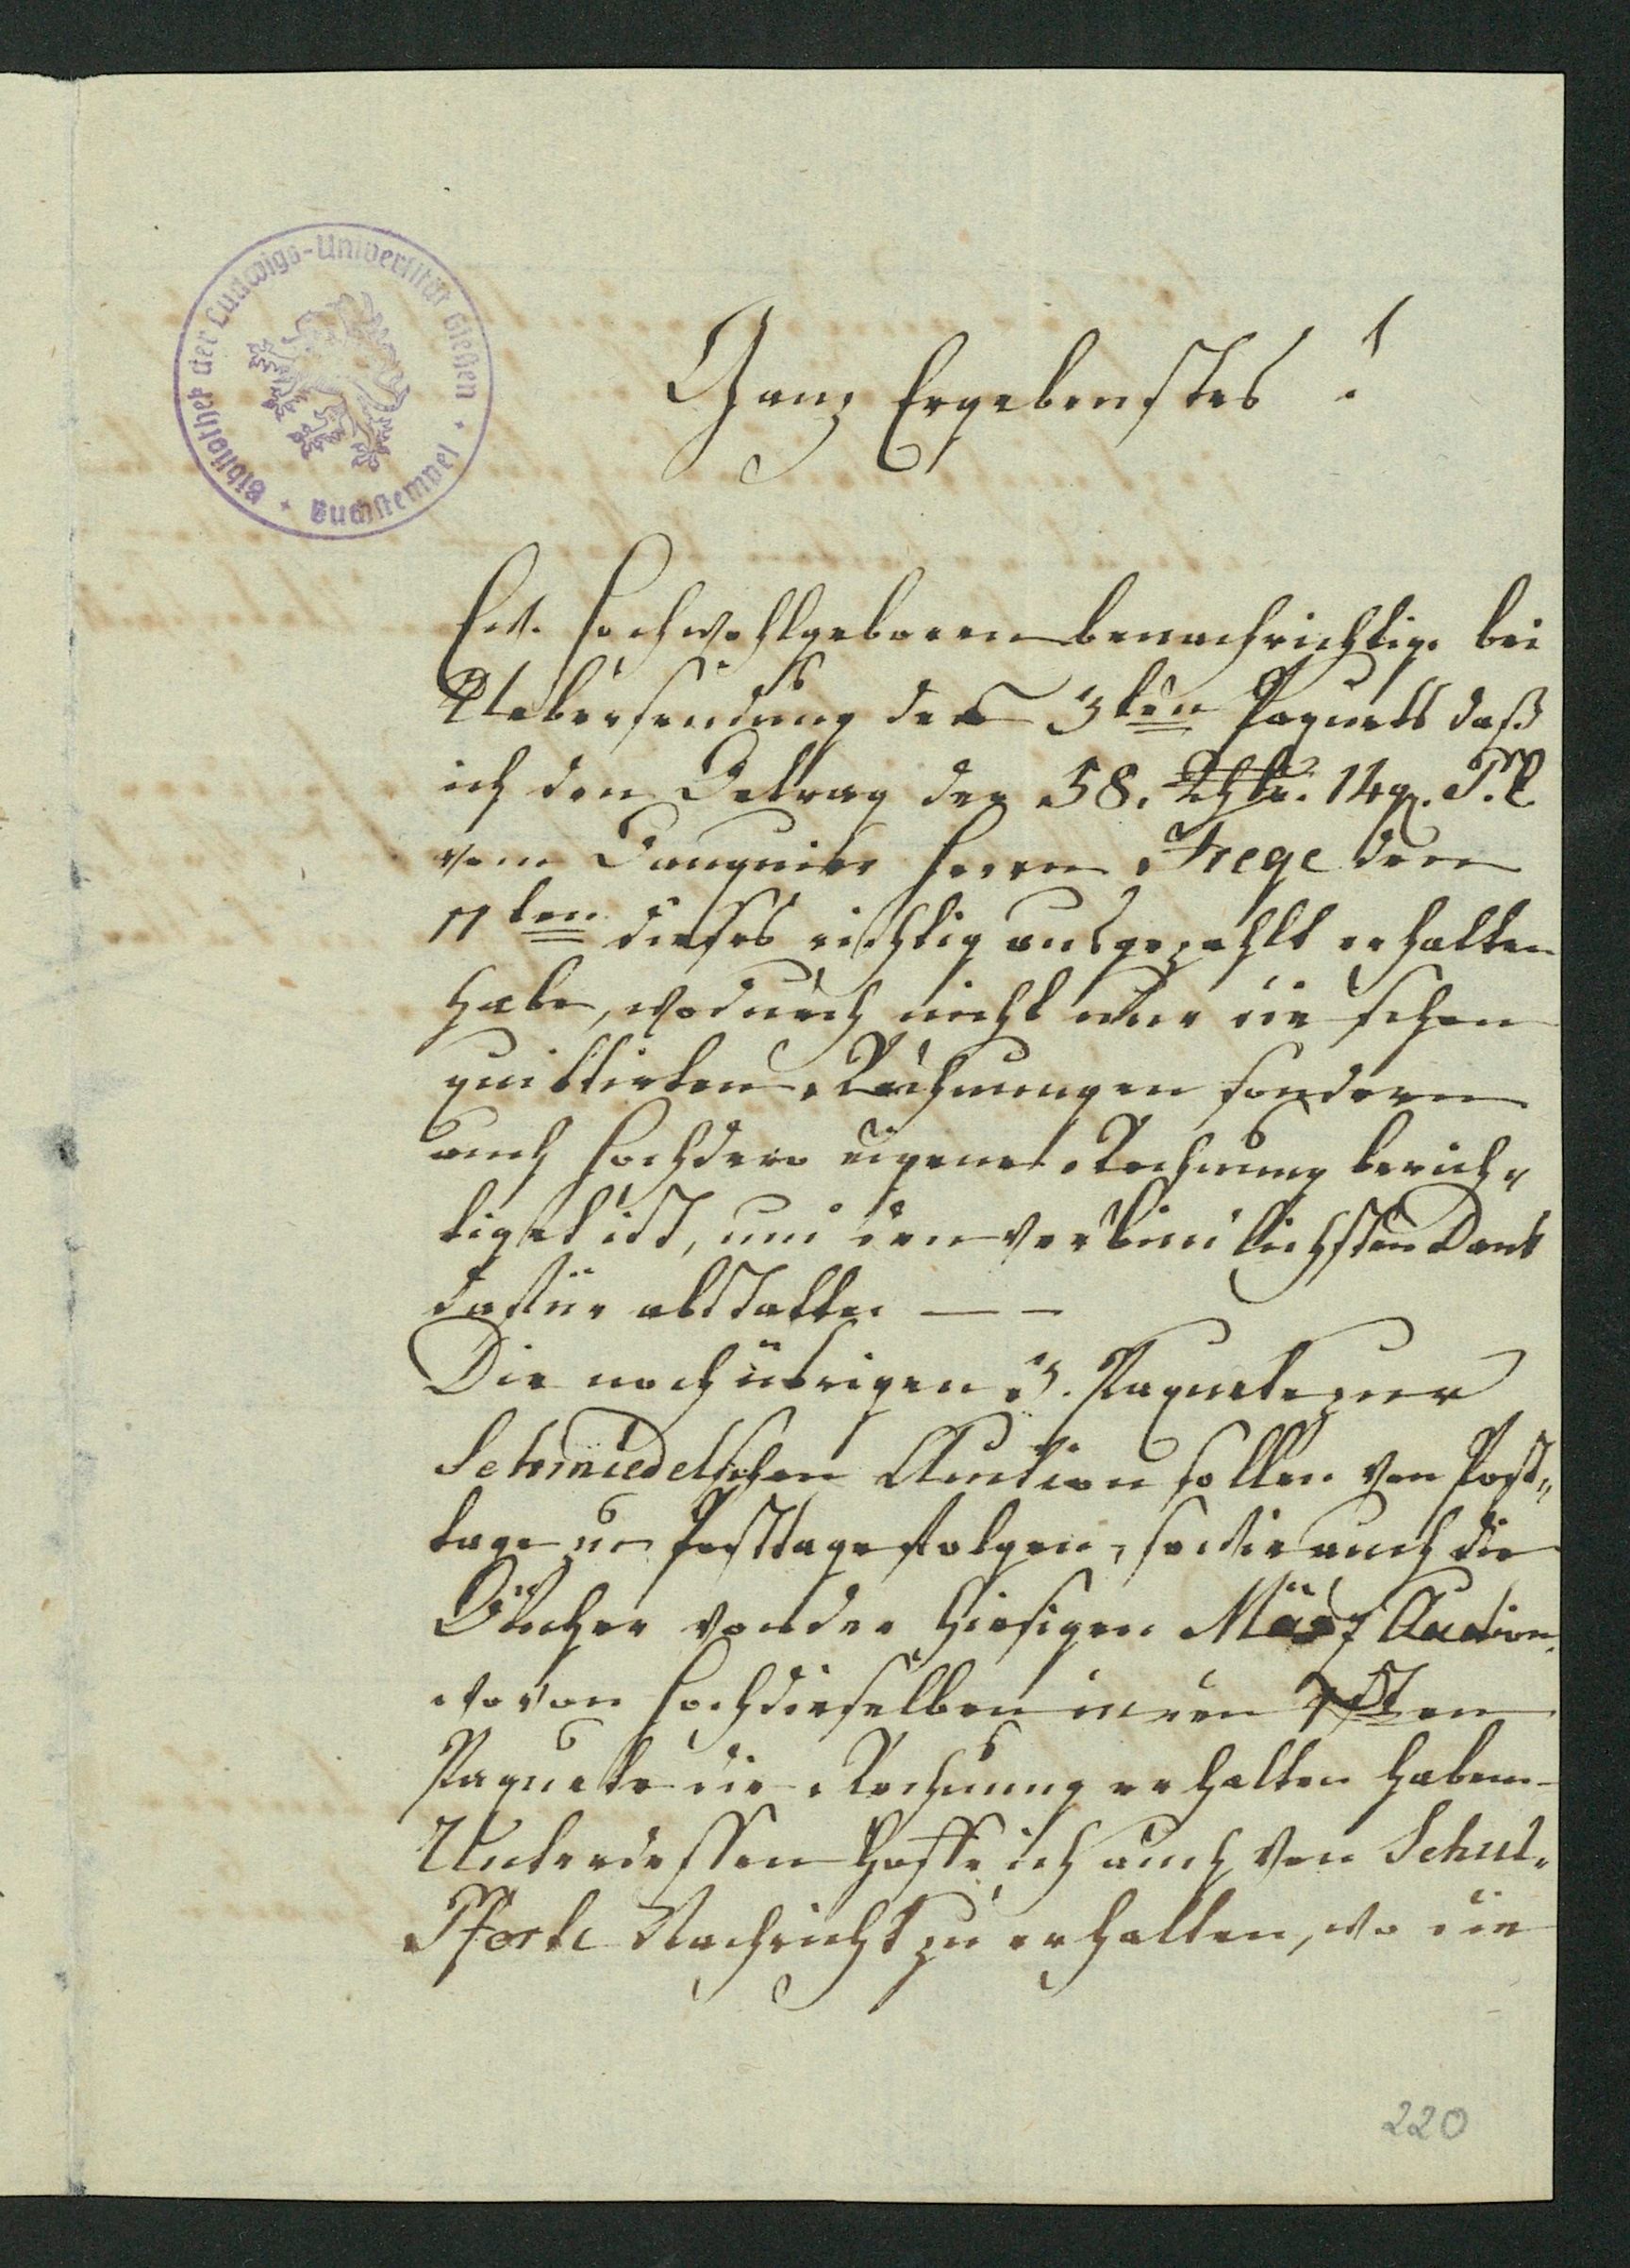 Bibliothek der Ludwigs-Universität Gießen
* Buchstempel *
Ganz Ergebenstes!
Ew. Hochwohlgeboren benachrichtige bei
Uebersendung des 3ten Paquets daß
ich den Betrag der 58. Rthlr. 14 g.
vom Banquier Herrn Frege den
11ten dieses richtig ausgezahlt erhalten
habe, wodurch nicht nur die schon
quittirten Rechnungen sondern
auch Hochdero eigene Rechnung berich„
tiget ist, und den verbindlichsten Dank
dafür abstatte. — —
Die noch übrigen 3. Paquete zur
Schmiedelschen Auction sollen von Post„
tage zu Posttage folgen, so wie auch die
Bücher von der hiesigen März Auction.
wovon Hochdieselben in den 1sten
Paquete die Rechnung erhalten haben
Unterdessen hoffe ich auch von Schul„
Pforte Nachricht zu erhalten, wo die
220